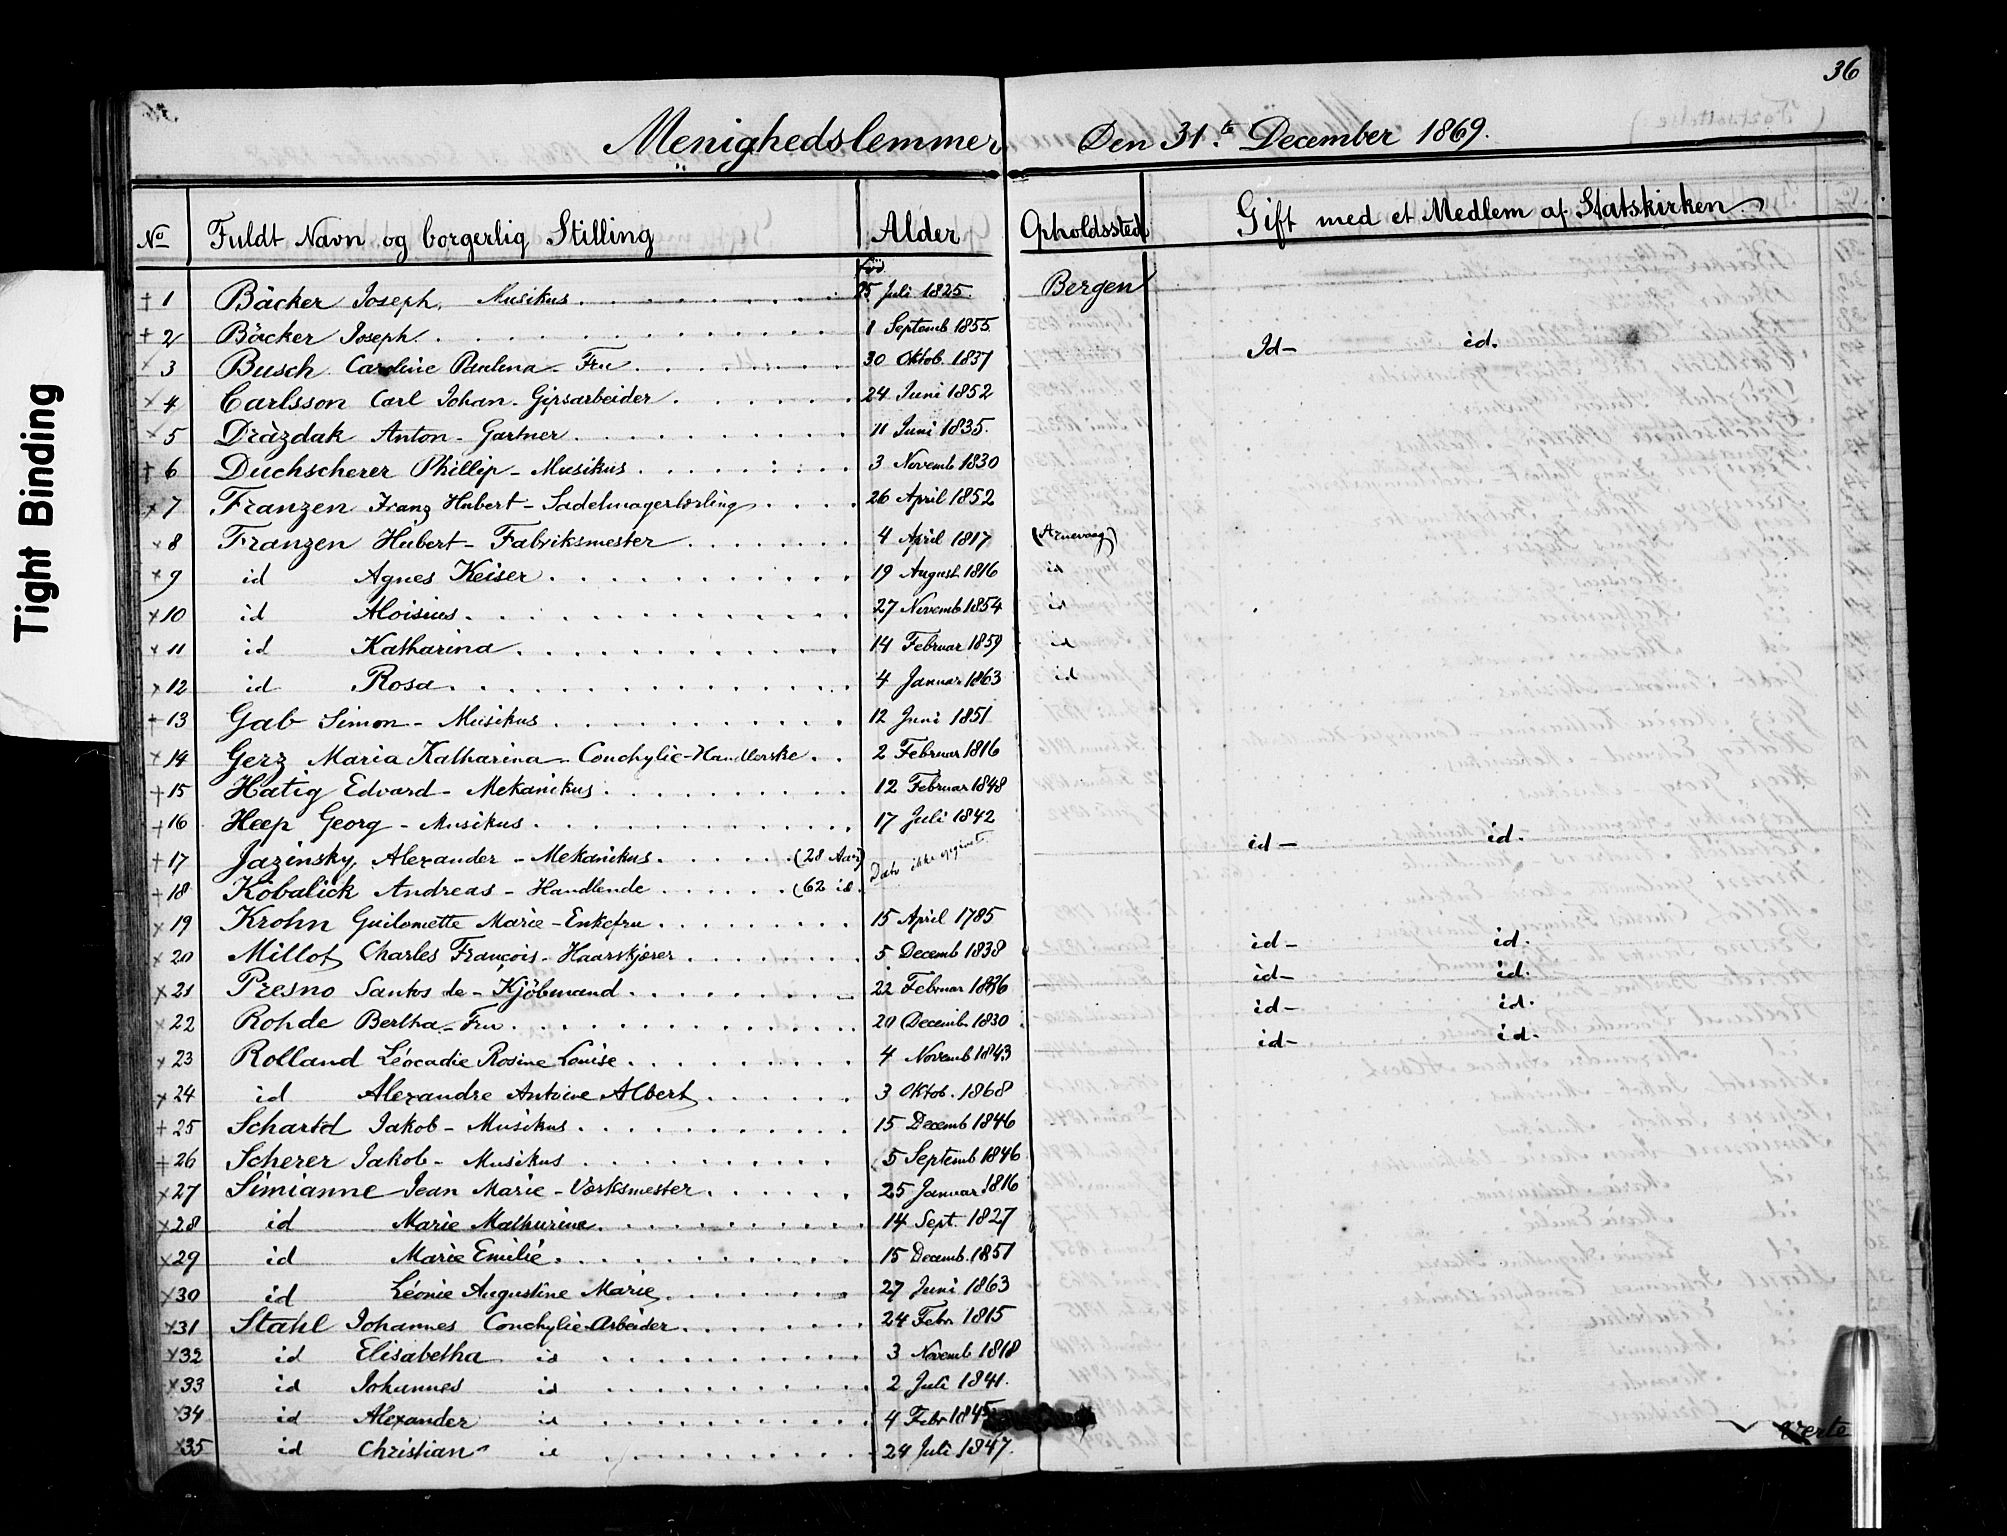 36
Menighedslemmer Den 31.te December 1869.
No Fuldt Navn og borgerlig Stilling Alder Opholdssted Gift med et Medlem af Statskirken
Fød
+ 1 Bäcker Joseph. Musikus 25 Juli 1825. Bergen
+ 2 Bäcker Joseph. 1 Septemb 1855.
x 3 Busch Caroline Paulina - Fru 30 Oktob. 1837 Id- id.
x 4 Carlsson Carl Johan - Gipsarbeider 24 Juni 1852
x 5 Dràzdak Anton - Gartner 11 Juni 1835.
+ 6 Duchscherer Phillip - Musikus 3 Novemb 1830
x 7 Franzen Franz Hubert - Sadelmagerlærling 26 April 1852
x 8 Franzen Hubert - Fabriksmester 4 April 1817 (Arnevaag)
x 9 id Agnes Keiser 19 August 1816 id
x 10 id Aloisius 27 Novemb 1854 id
x 11 id Katharina 14 Februar 1859 id
x 12 id Rosa 4 Januar 1863 id
+ 13 Gab Simon - Musikus 12 Juni 1851
x 14 Gerz Maria Katharina - Conchylie-Handlerske 2 Februar 1816
+ 15 Hatig Edvard - Mekanikus 12 Februar 1848
+ 16 Heep Georg - Musikus 17 Juli 1842
+ 17 Jazinsky, Alexander - Mekanikus (28 Aar) Dato ikke opgivet. id - id.
+ 18 Kobalick Andreas - Handlende (62 id.
x 19 Krohn Guilomette Marie - Enkefru 15 April 1785
x 20 Millot Charles François - Haarskjærer 5 Decemb 1838 id - id.
x 21 Presno Santos de - Kjöbmand 22 Februar 1836 id- id.
x 22 Rohde Bertha - Fru 20 Decemb 1830 id- id.
x 23 Rolland Léocadie Rosine Louise 4 Novemb 1843 id- id.
x 24 id Alexandre Antoine Albert 3 Oktob. 1868
+ 25 Schartd Jakob - Musikus 15 Decemb 1846
+ 26 Scherer Jakob - Musikus 5 Septemb 1846
x 27 Simianne Jean Marie - Værksmester 25 Januar 1816
x 28 id Marie Mathurine 14 Sept. 1827
x 29 id Marie Emilié 15 Decemb. 1851
x 30 id Léonie Augustine Marie 27 Juni 1863
x 31 Stahl Johannes Conchylie-Arbeider 24 Febr 1815
x 32 id Elisabetha id 3 Novemb 1818
x 33 id Johannes id 2 Juli 1841.
x 34 id Alexander id 4 Febr 1845
x 35 id Christian id 24 Juli 1847.
Verte
Tight Binding